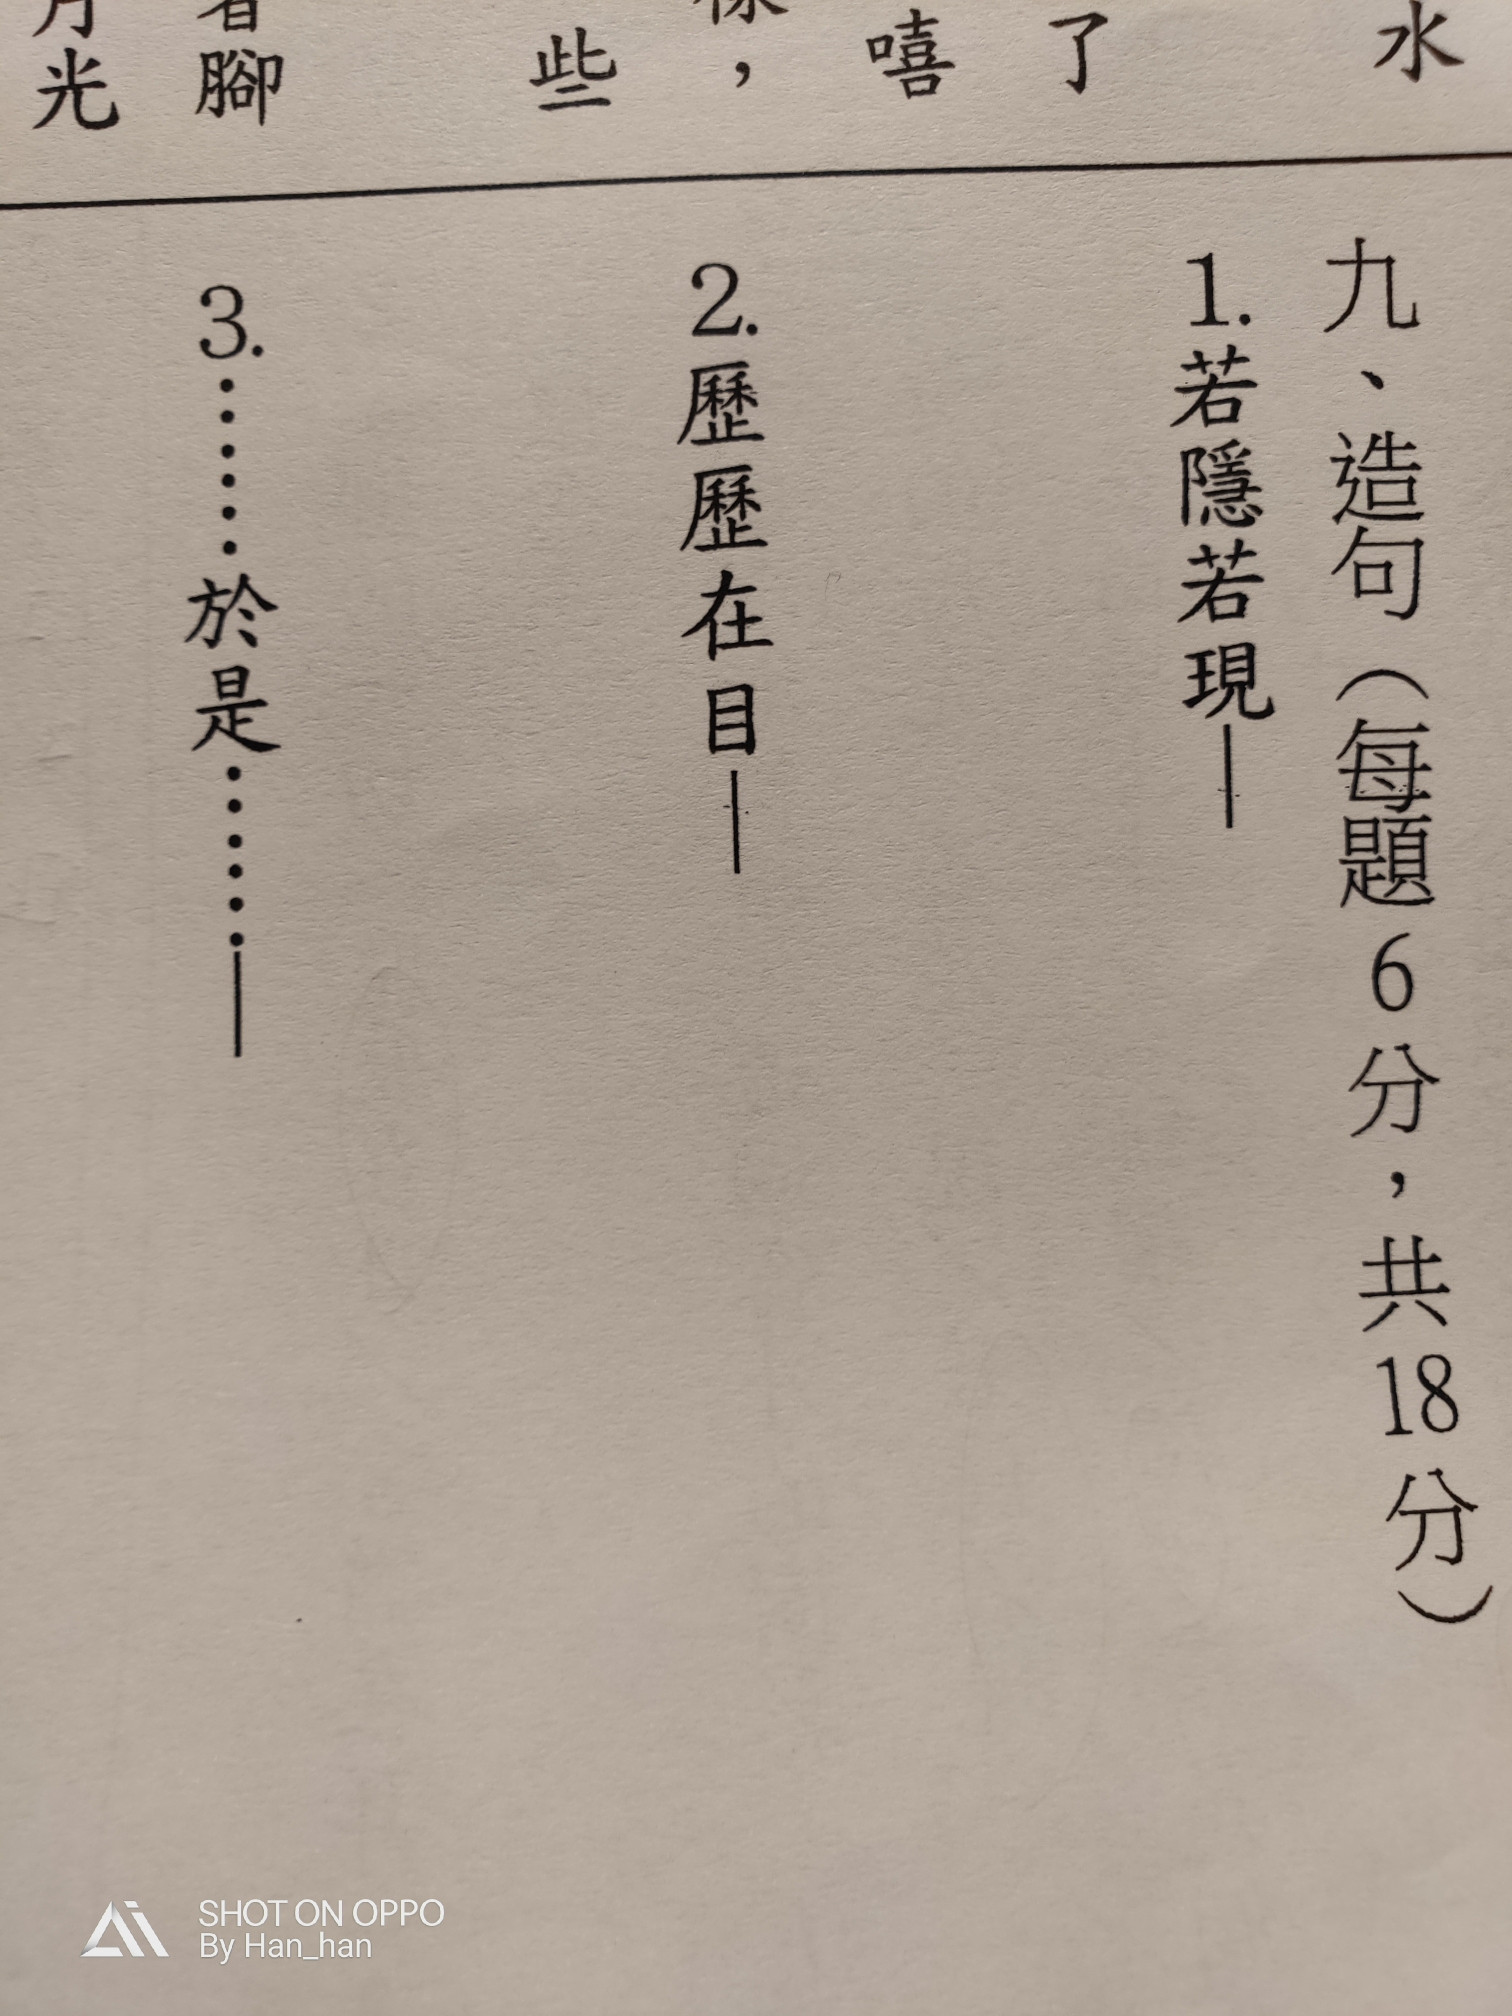 水
了
嘻
，
些
腳
光
九、造句（每題6分，共18分）
1.若隱若現—
2.歷歷在目—
3.……於是……—
SHOT ON OPPO
By Han_han